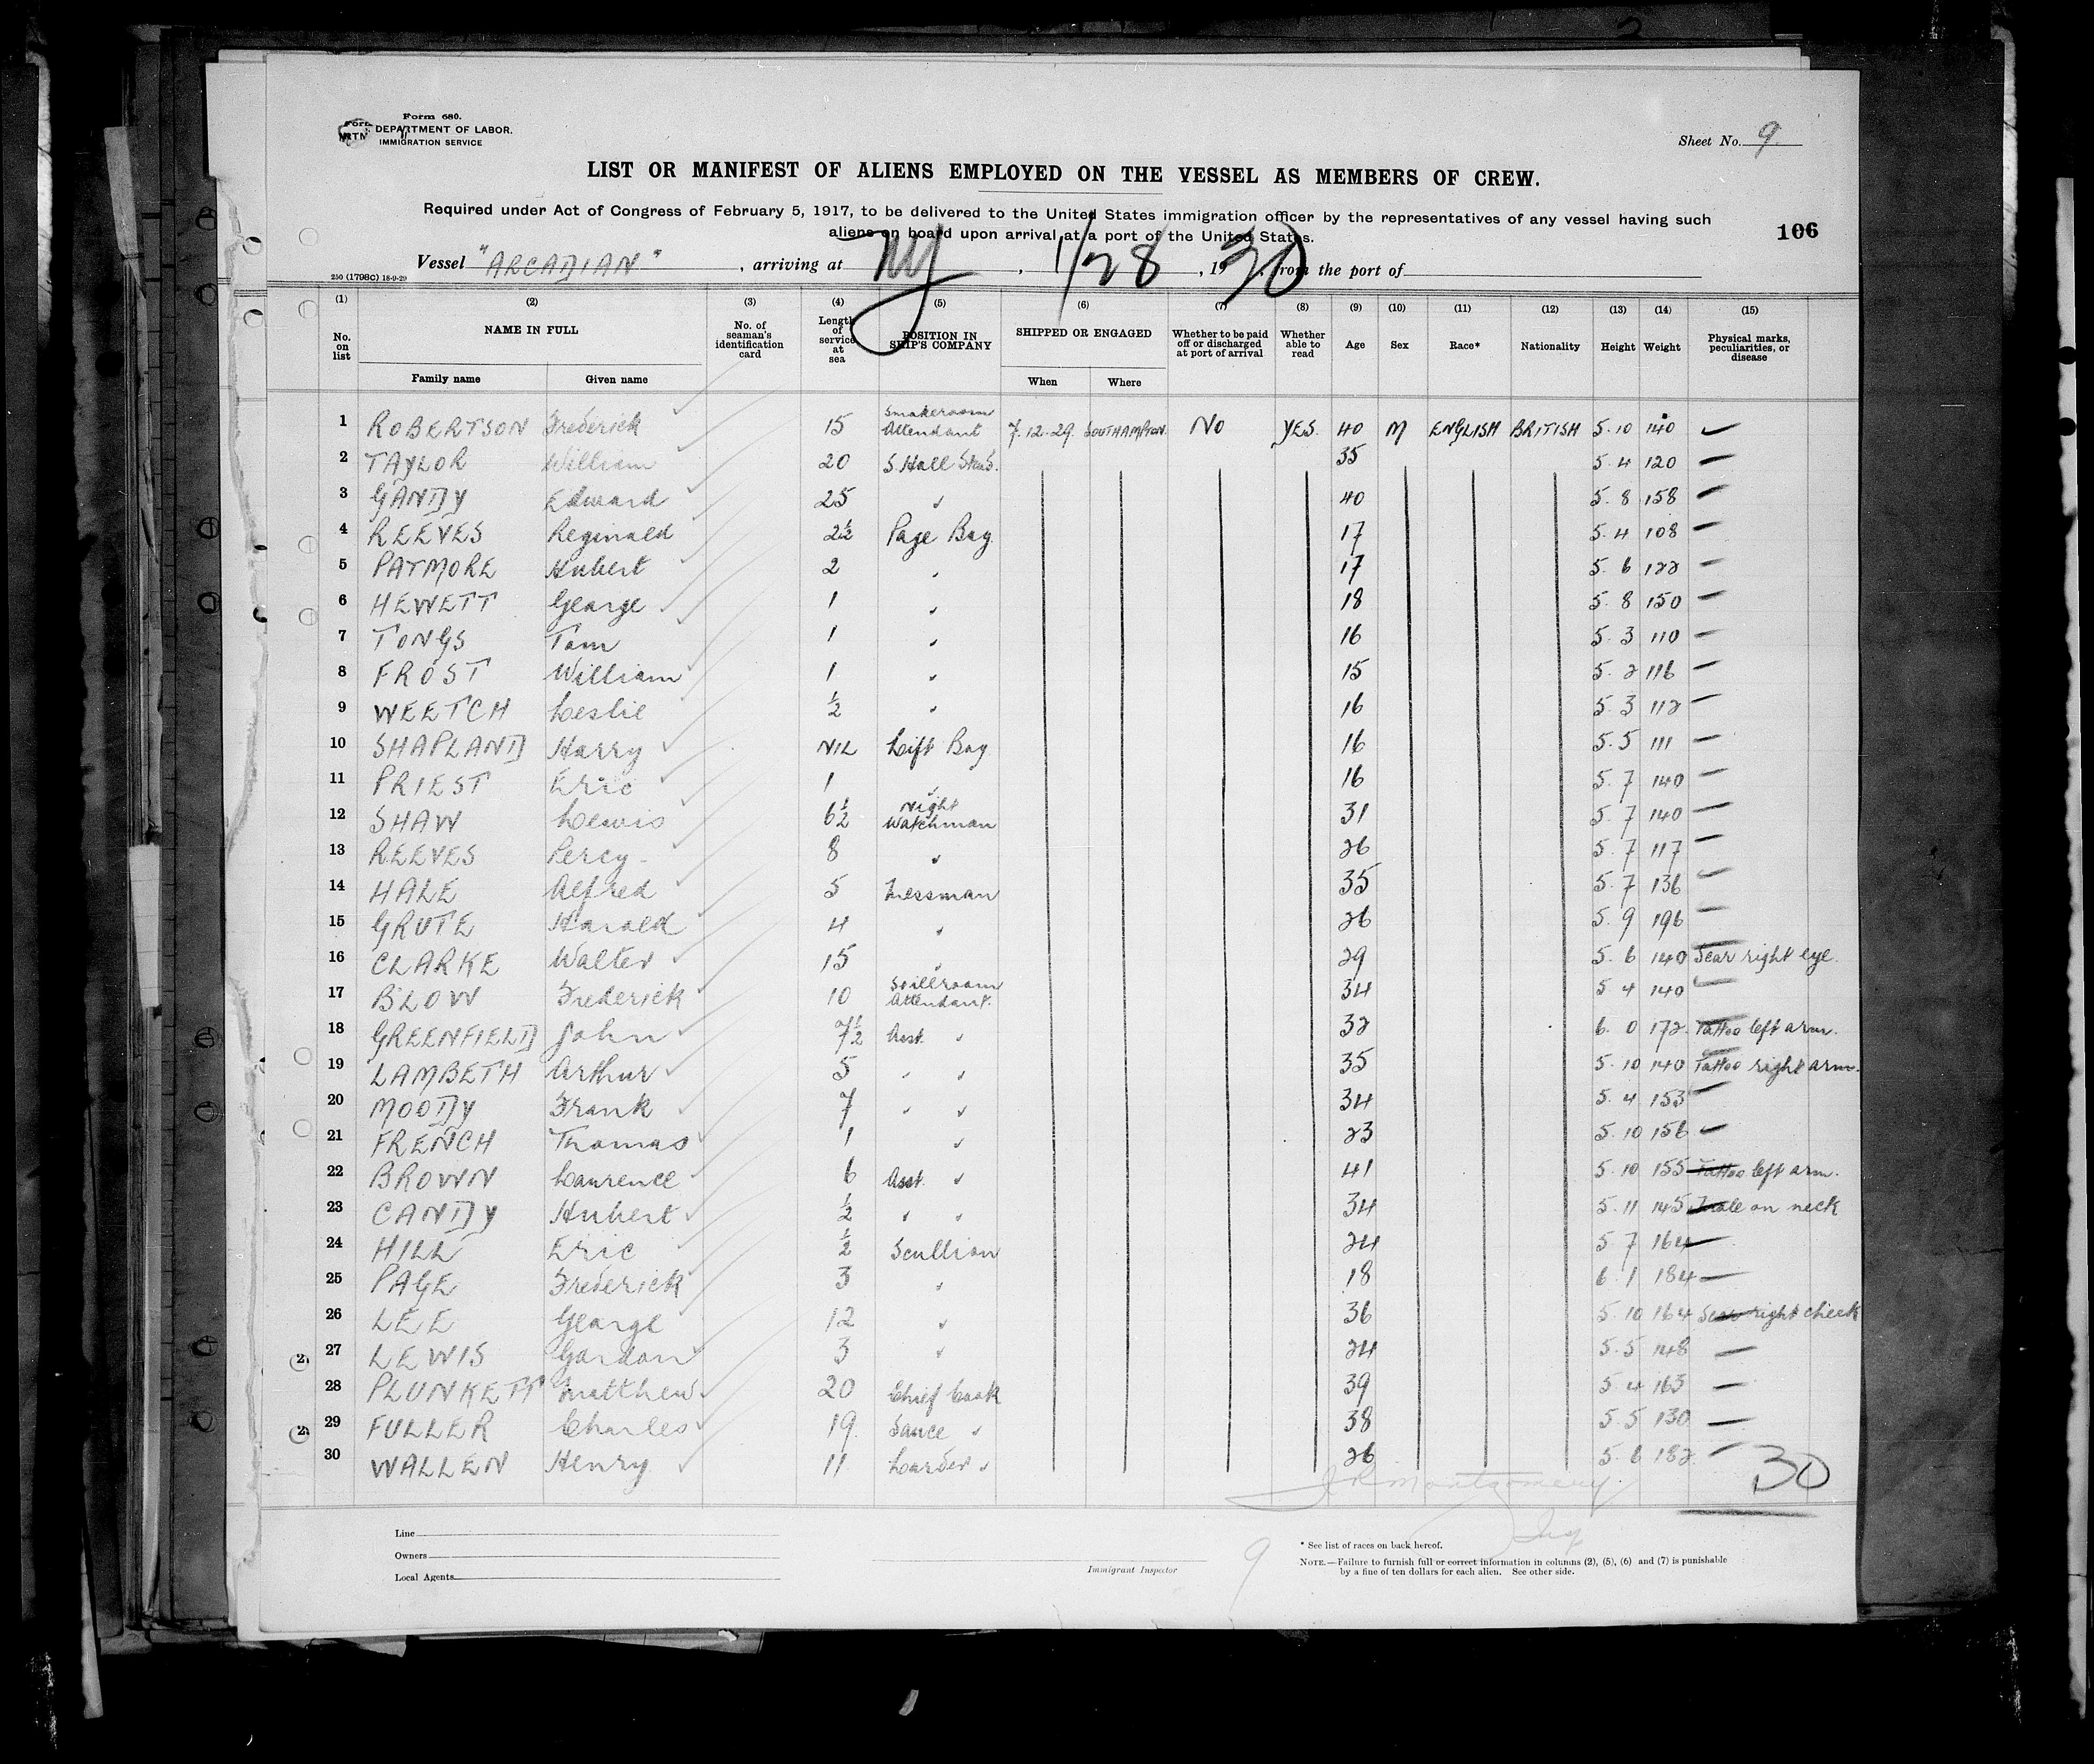 Form 680.
DEPARTMENT OF LABOR.
IMMIGRATION SERVICE
Sheet No. 9
LIST OR MANIFEST OF ALIENS EMPLOYED ON THE VESSEL AS MEMBERS OF CREW.
Required under Act of Congress of February 5, 1917, to be delivered to the United States immigration officer by the representatives of any vessel having such
aliens on board upon arrival at a port of the United States.
106
Vessel "ARCADIAN", arriving at NY, 1/28, 1930, from the port of
250 (1798C) 18-9-29
(1) (2) (3) (4) (5) (6) (7) (8) (9) (10) (11) (12) (13) (14) (15)
No. on list NAME IN FULL No. of seaman's identification card Length of service at sea POSITION IN SHIP'S COMPANY SHIPPED OR ENGAGED Whether to be paid off or discharged at port of arrival Whether able to read Age Sex Race* Nationality Height Weight Physical marks, peculiarities, or disease
Family name Given name When Where
1 ROBERTSON Frederick 15 Smokeroom Attendant 7.12.29. SOUTHAMPTON. NO YES. 40 M ENGLISH BRITISH 5.10 140
2 TAYLOR William 20 S. Hall Stwd. 35 5.4 120 —
3 GANDY Edward 25 " 40 5.8 158 —
4 REEVES Reginald 2½ Page Boy. 17 5.4 108 —
5 PATMORE Hubert 2 " 17 5.6 122 —
6 HEWETT George 1 " 18 5.8 150 —
7 TONGS Tom 1 " 16 5.3 110 —
8 FROST William 1 " 15 5.2 116 —
9 WEETCH Leslie ½ " 16 5.3 112 —
10 SHAPLAND Harry NIL Lift Boy 16 5.5 111 —
11 PRIEST Eric 1 " 16 5.7 140 —
12 SHAW Lewis 6½ Night Watchman 31 5.7 140 —
13 REEVES Percy 8 " 26 5.7 117 —
14 HALE Alfred 5 Messman 35 5.7 136 —
15 GRUTE Harold 4 " 26 5.9 196 —
16 CLARKE Walter 15 " 29 5.6 140 Scar right eye.
17 BLOW Frederick 10 Stillroom Attendant. 34 5.4 140 —
18 GREENFIELD John 7½ Asst. " 32 6.0 172 Tattoo left arm.
19 LAMBETH Arthur 5 " " 35 5.10 140 Tattoo right arm.
20 MOODY Frank 7 " " 34 5.4 153 —
21 FRENCH Thomas 1 " 23 5.10 156 —
22 BROWN Laurence 6 Asst. " 41 5.10 155 Tattoo left arm.
23 CANDY Hubert ½ " " 34 5.11 145 Mole on neck
24 HILL Eric ½ Scullion 24 5.7 164 —
25 PAGE Frederick 3 " 18 6.1 184 —
26 LEE George 12 " 36 5.10 164 Scar right cheek
27 LEWIS Gordon 3 " 24 5.5 148 —
28 PLUNKETT Matthew 20 Chief Cook 39 5.4 163 —
29 FULLER Charles 19. Sauce " 38 5.5 130 —
30 WALLEN Henry 11 Larder " 26 5.6 182 —
30
Line
Owners
Local Agents
9
Immigrant Inspector
* See list of races on back hereof.
NOTE.—Failure to furnish full or correct information in columns (2), (5), (6) and (7) is punishable
by a fine of ten dollars for each alien. See other side.